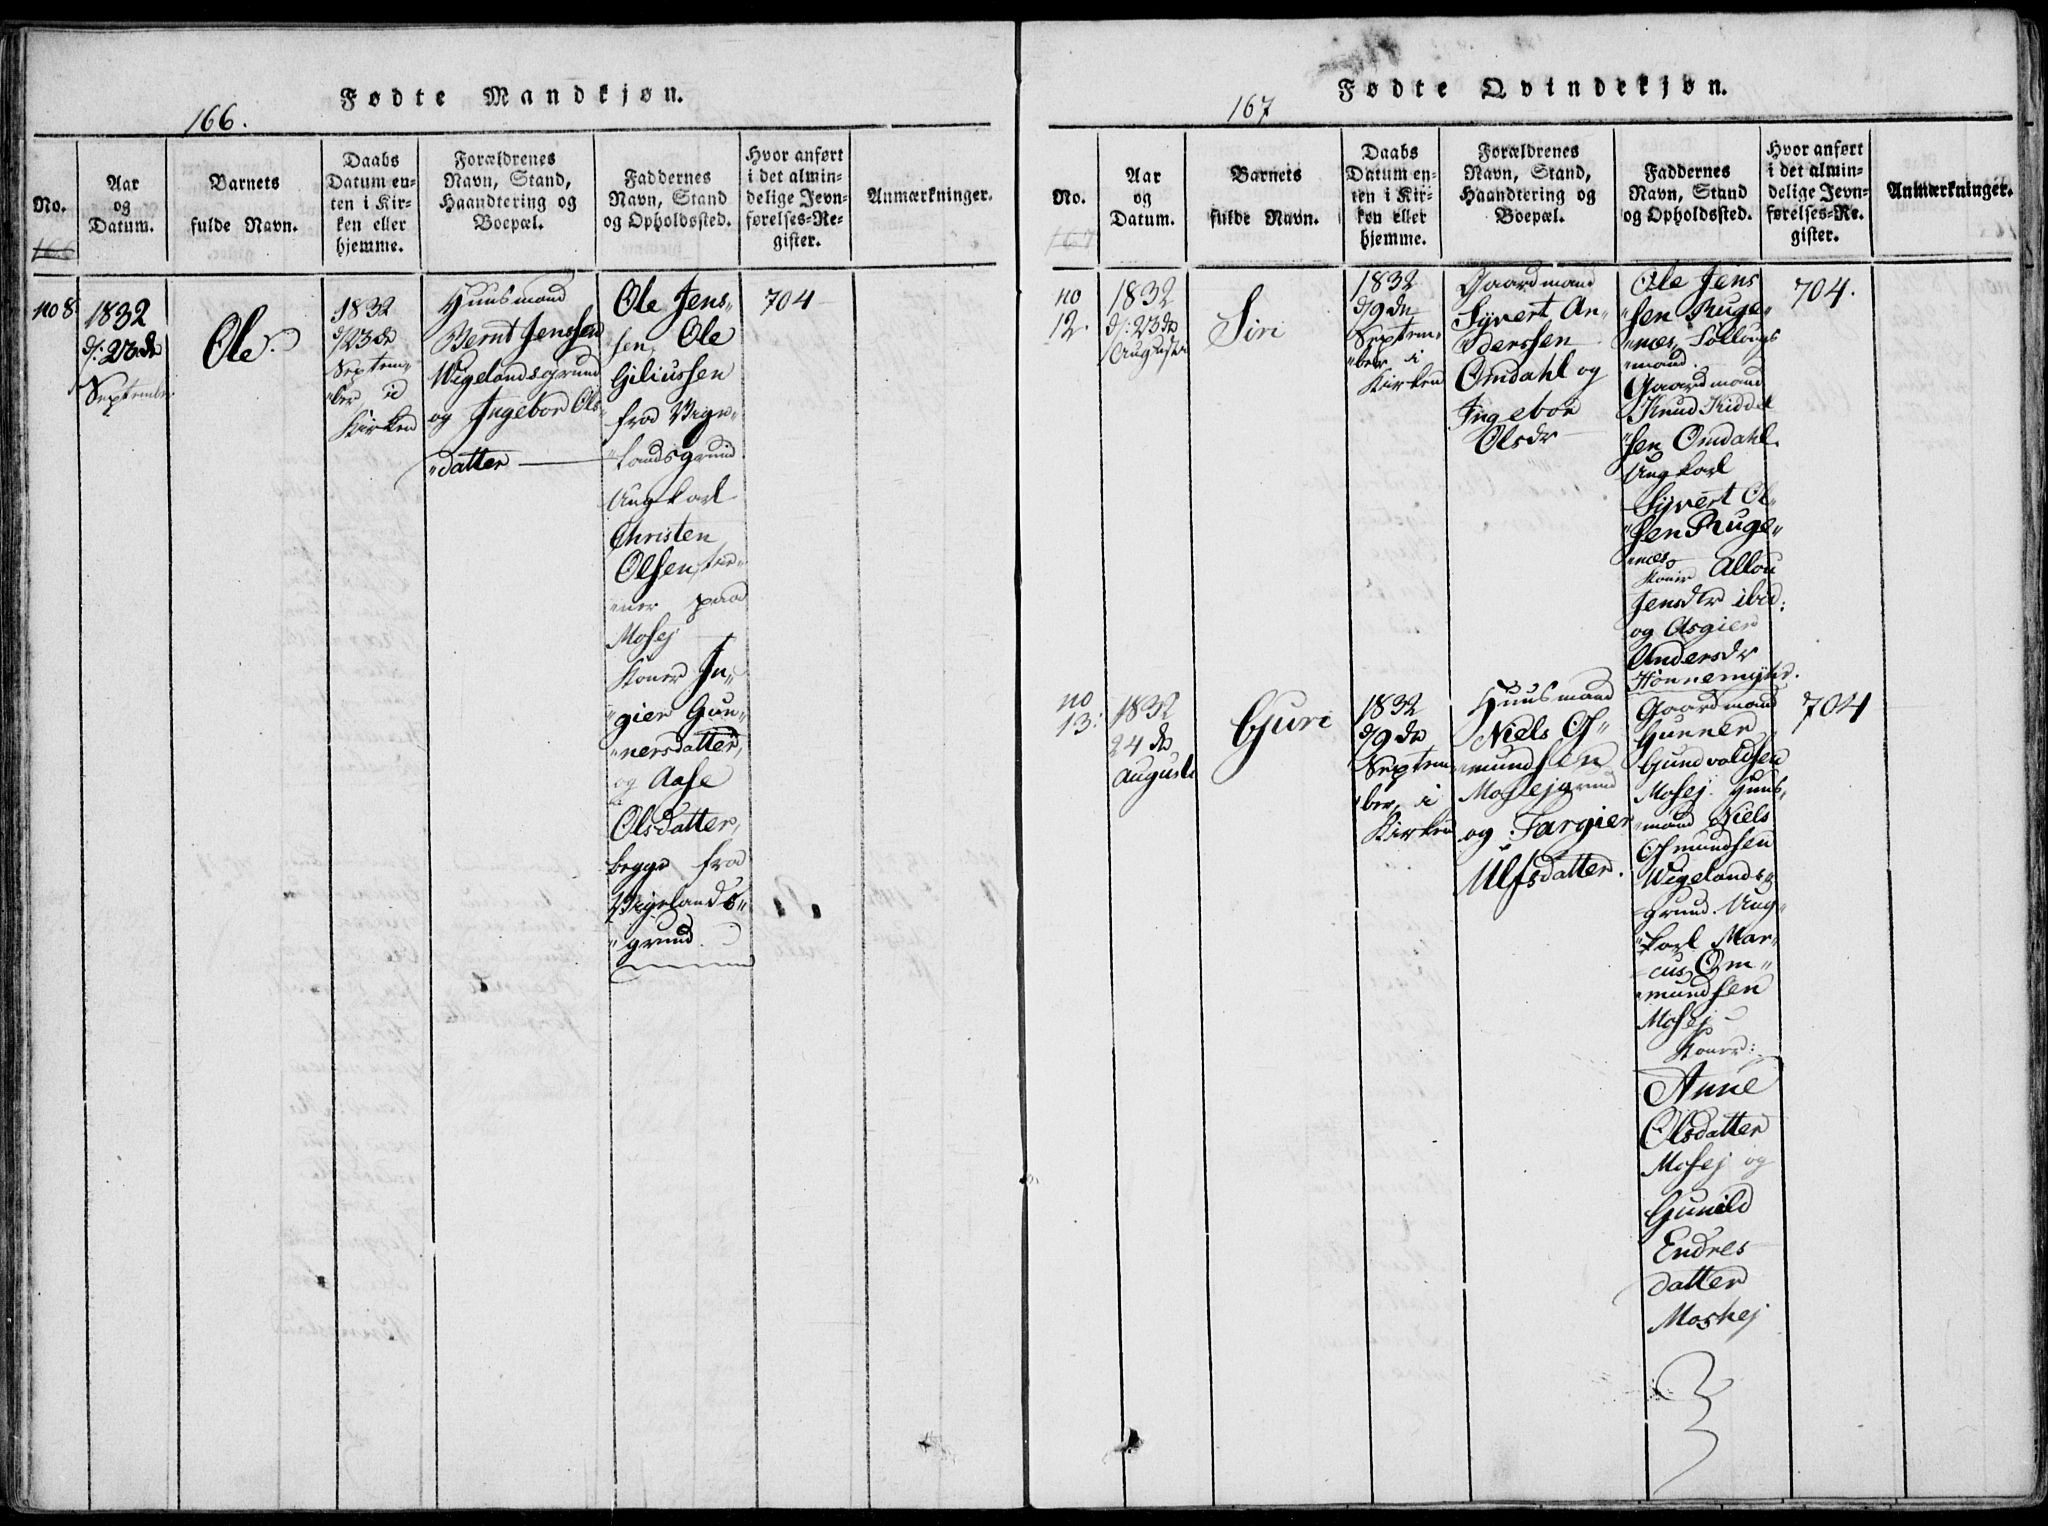 Fødte Mandkjøn.
166.
No.
166
Aar
og
Datum.
Barnets
fulde Navn.
Daabs
Datum en-
ten i Kir-
ken eller
hjemme.
Forældrenes
Navn, Stand,
Haandtering og
Boepæl.
Faddernes
Navn, Stand
og Opholdssted.
Hvor anført
i det almin-
delige Jevn-
førelses-Re-
gister.
Anmærkninger.
no 8
1832
d: 23de
September
Ole.
1832
d/23de
Septem„
„ber i
Kirken
Huusmand
Bernt Jenssen
Wigelandsgrund
og Ingebor Ols„
„datter
Ole Jens„
sen, Ole
Giliussen
fra Vige„
„landsgrund
Ungkarl
Christen
Olsen, tie„
„ner paa
Mosej
Koner In„
„gier Gun„
„nersdatter,
og Aase
Olsdatter,
begge fra
Vigelands„
„grund.
704
Fødte Qvindekjøn.
167
No.
167
Aar
og
Datum.
Barnets
fulde Navn.
Daabs
Datum en-
ten i Kir-
ken eller
hjemme.
Forældrenes
Navn, Stand,
Haandtering og
Boepæl.
Faddernes
Navn, Stand
og Opholdssted.
Hvor anført
i det almin-
delige Jevn-
førelses-Re-
gister.
Anmærkninger.
no
12.
1832
d: 23de
Augusti
Siri
1832
d/9de
Septem„
„ber i
Kirken
Gaardmand
Syvert An„
„derssen
Omdahl og
Ingebor
Olsdr
Ole Jens
„sen Ruge„
„næs,
„mand.
Gaardmand
Knud Kiddel
„sen Omdahl.
Ungkarl
Syvert Ol„
„sen Ruge„
„næs
Koner Allou
Jensdtr ibid:
og Asgier
Andersdr
Hönnemyhr.
704.
no
13:
1832
24de
Augusti
Guri
1832
d/9de
Septem„
„ber, i
Kirken
Huusmand
Niels Os„
„mundsen
Mosejgrund
og Targier
Ulfsdatter.
Gaardmand
Gunner
Gundvaldsen
Mosej. Huus„
„mand Niels
Osmundsen
Wigelands„
„grund. Ung„
„karl Mar„
„cus Om„
„mundsen
Mosej
Koner:
Anne
Olsdatter
Mosej og
Gunild
Endres
datter
Moshej
704